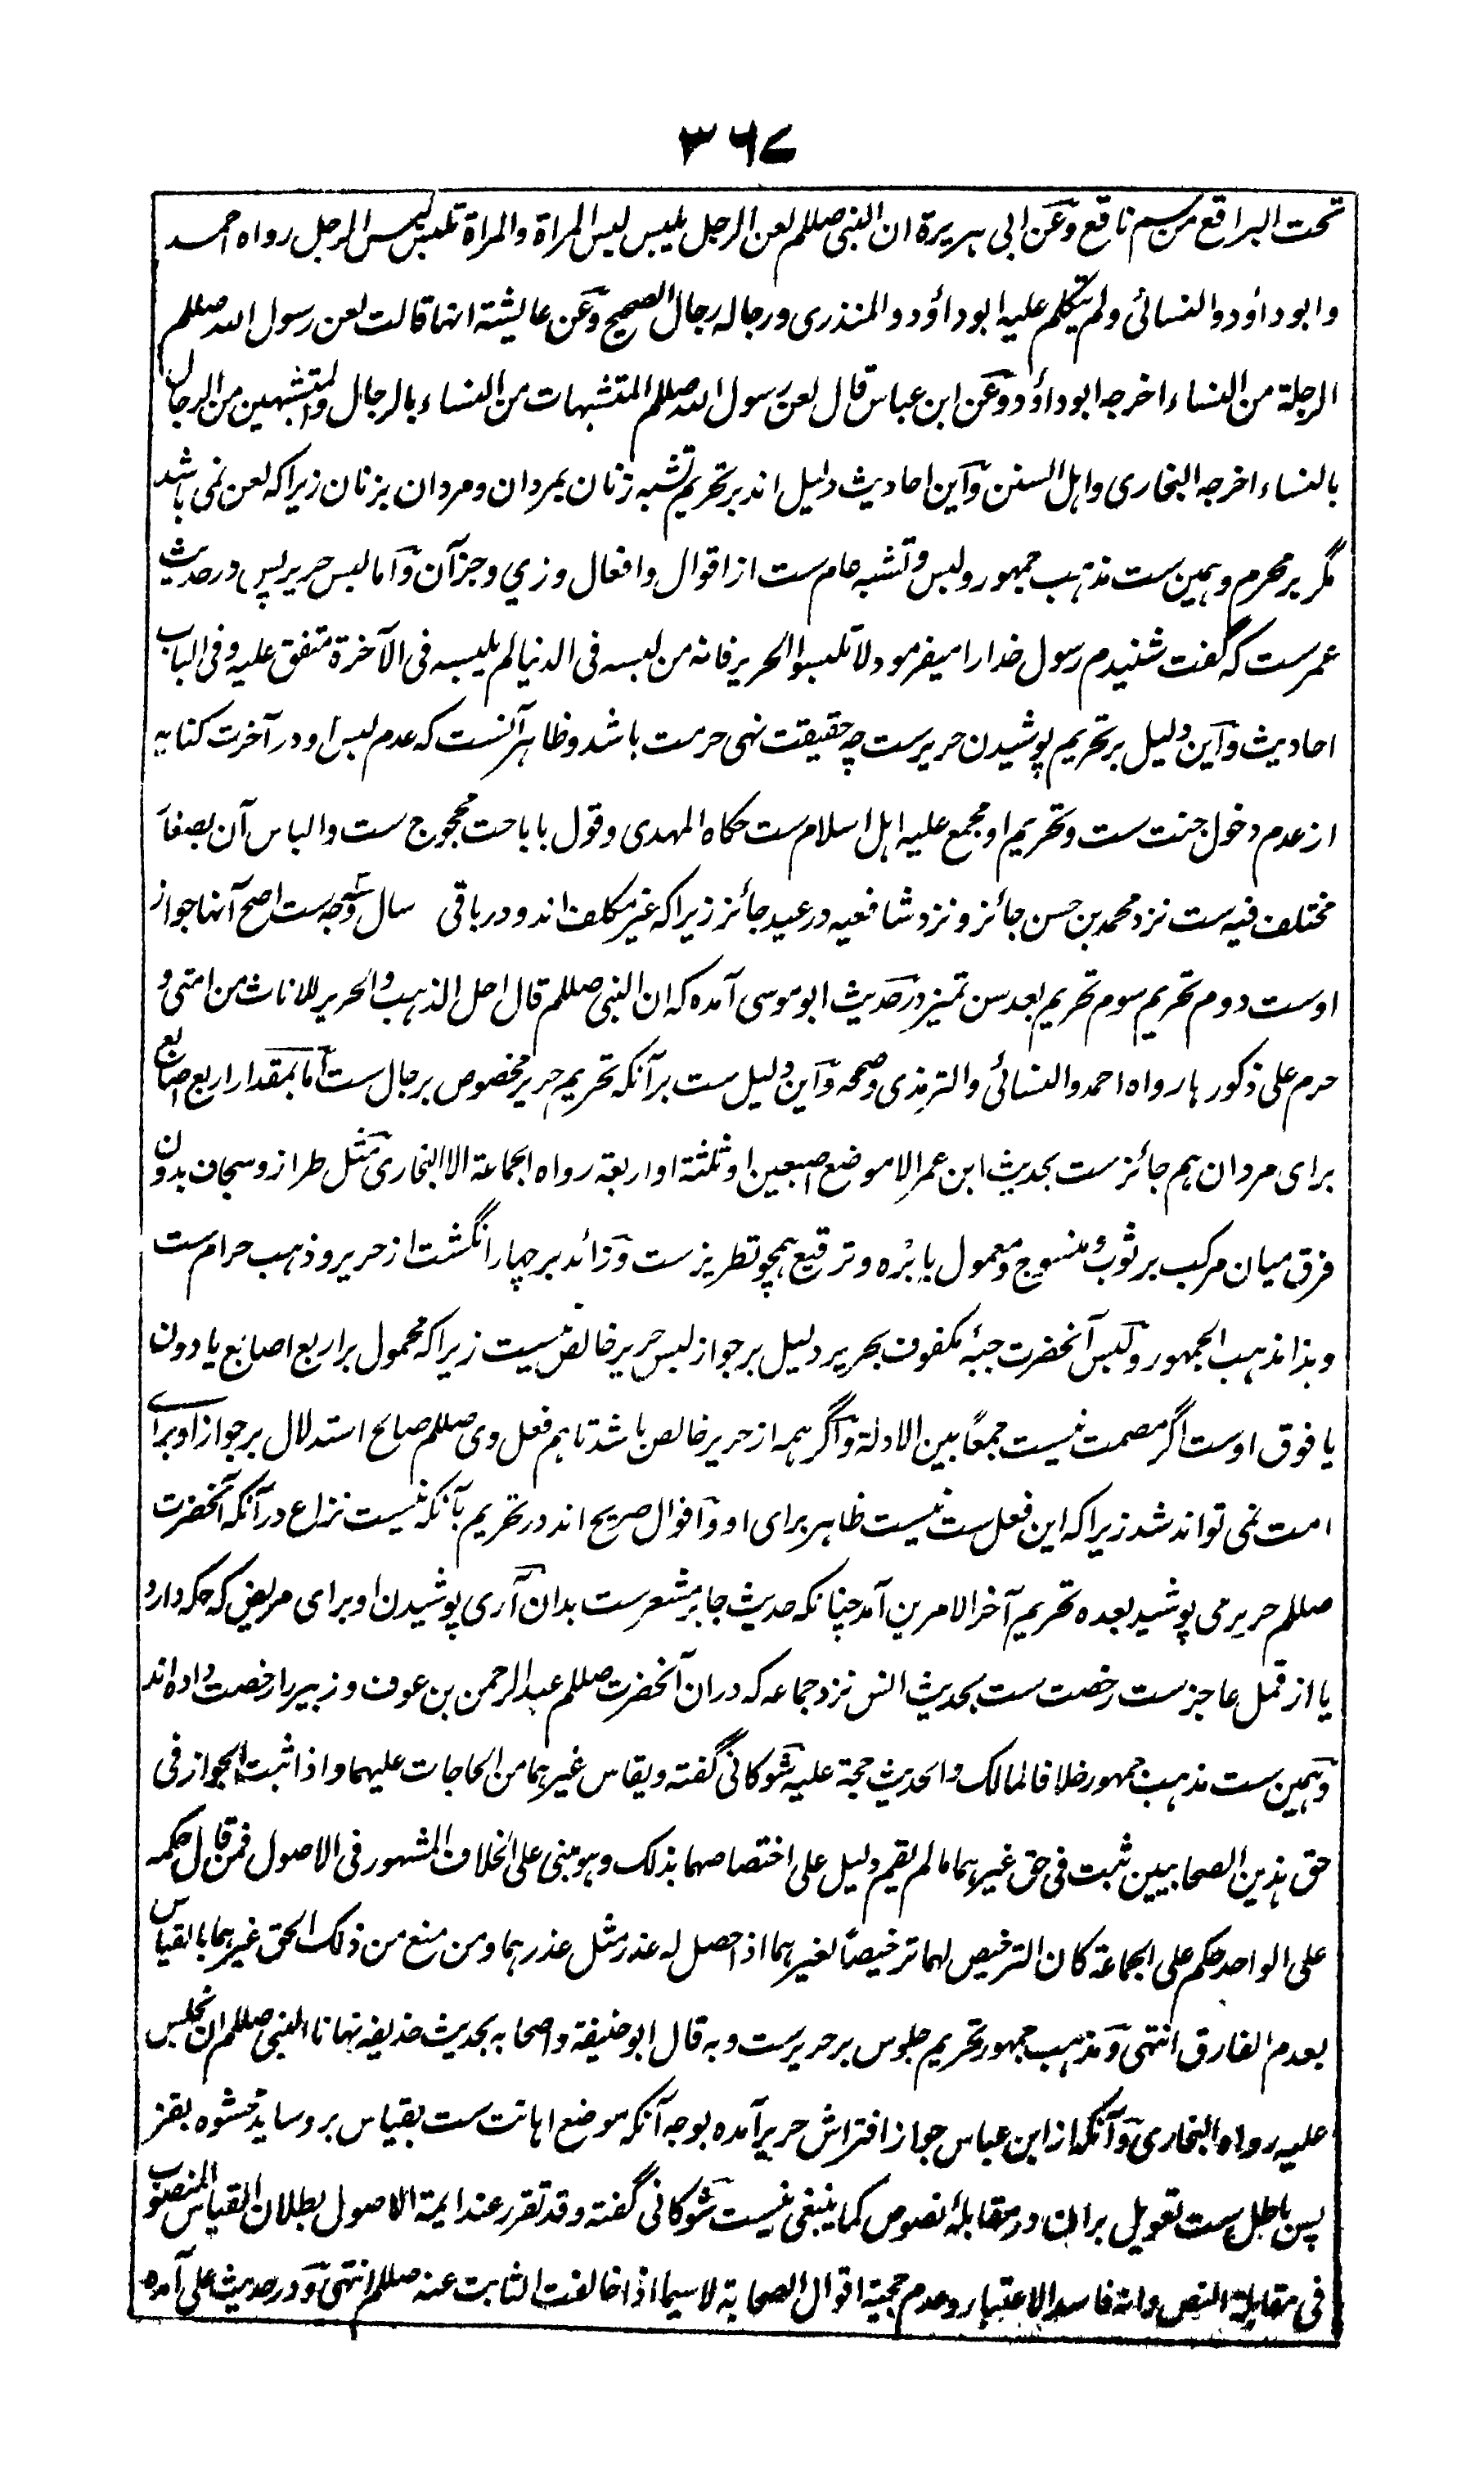 ۳۶۷
تحت البراقع من سم ناقع وعن ابی ہریرة ان النبی صللم لعن الرجل یلبس لبس المراة والمراة تلبس لبس الرجل رواہ احمد
وابو داؤد والنسائی ولم یتکلم علیہ ابو داؤد والمنذری ورجالہ رجال الصحیح وعن عایشة انہا قالت لعن رسول اللہ صللم
الرجلة من النساء اخرجہ ابو داؤد وعن ابن عباس قال لعن رسول اللہ صللم المتشبہات من النساء بالرجال والمتشبہین من الرجال
بالنساء اخرجہ البخاری واہل السنن واین احادیث دلیل اند بر تحریم تشبہ زنان بمردان ومردان بزنان زیراکہ لعن نمی باشد
مگر بر محرم وہمین ست مذہب جمہور ولبس وتشبہ عام ست از اقوال وافعال وزي وجز آن واما لبس حریر پس در حدیث
عمر ست کہ گفت شنیدم رسول خدا را میفرمود لا تلبسوا الحریر فانہ من لبسہ فی الدنیا لم یلبسہ فی الآخرة متفق علیہ وفی الباب
احادیث واین دلیل بر تحریم پوشیدن حریر ست چہ حقیقت نہی حرمت باشد وظاہر آنست کہ عدم لبس او در آخرت کنایہ
از عدم دخول جنت ست وتحریم او مجمع علیہ اہل اسلام ست حکاہ المہدی وقول باباحت محجوج ست والباس آن بصغار
مختلف فیہ ست نزد محمد بن حسن جائز ونزد شافعیہ در عید جائز زیراکہ غیر مکلف اند ودر باقی سال سہ وجہ ست اصح آنہا جواز
اوست دوم تحریم سوم تحریم بعد سن تمیز در حدیث ابو موسی آمدہ کہ ان النبی صللم قال احل الذہب والحریر للاناث من امتی و
حرم علی ذکورہا رواہ احمد والنسائی والترمذی وصححہ واین دلیل ست بر آنکہ تحریم حریر مخصوص برجال ست اما بمقدار اربع اصابع
برای مردان ہم جائز ست بحدیث ابن عمر الا موضع اصبعین او ثلثة او اربعة رواہ الجماعة الا البخاری مثل طراز وسجاف بدون
فرق میان مرکب بر ثوب ومنسوج ومعمول بابرہ وترقیع ہمچو تطریز ست وزائد بر چہار انگشت از حریر وذہب حرام ست
وہذا مذہب الجمہور ولبس آنحضرت جبۂ مکفوف بحریر دلیل بر جواز لبس حریر خالص نیست زیراکہ محمول بر اربع اصابع یا دون
یا فوق اوست اگر مصمت نیست جمعًا بین الادلة واگر ہمہ از حریر خالص باشد تا ہم فعل وی صللم صالح استدلال بر جواز او برای
امت نمی تواند شد زیراکہ این فعل ست نیست ظاہر برای او واقوال صریح اند در تحریم بآنکہ نیست نزاع در آنکہ آنحضرت
صللم حریر می پوشید بعدہ تحریم آخر الامرین آمد چنانکہ حدیث جابر مشعر ست بدان آری پوشیدن او برای مریض کہ حکہ دارد
یا از قمل عاجز ست رخصت ست بحدیث انس نزد جماعہ کہ دران آنحضرت صللم عبد الرحمن بن عوف وزبیر را رخصت دادہ اند
وہمین ست مذہب جمہور خلافا لمالک والحدیث حجة علیہ شوکانی گفتہ ویقاس غیرہما من الحاجات علیہما واذا ثبت الجواز فی
حق ہذین الصحابیین ثبت فی حق غیرہما ما لم یقم دلیل علی اختصاصہما بذلک وہو مبنی علی الخلاف المشہور فی الاصول فمن قال حکمہ
علی الواحد حکم علی الجماعة کان الترخیص لہما ترخیصًا لغیرہما اذا حصل لہ عذر مثل عذرہما ومن منع من ذلک الحق غیرہما بالقیاس
بعدم الفارق انتہی ومذہب جمہور تحریم جلوس بر حریر ست وبہ قال ابو حنیفة واصحابہ بحدیث حذیفہ نہانا النبی صللم ان نجلس
علیہ رواہ البخاری وآنکہ از ابن عباس جواز افتراش حریر آمدہ بوجہ آنکہ موضع اہانت ست بقیاس بر وساید محشوہ بقز
پس باطل ست تعویل بران در مقابلۂ نصوص کما ینبغی نیست شوکانی گفتہ وقد تقرر عند ایمة الاصول بطلان القیاس المنصوب
فی مقابلة النص وانہ فاسد الاعتبار وعدم حجیة اقوال الصحابة لا سیما اذا خالفت الثابت عنہ صللم انتہی ودر حدیث علی آمدہ